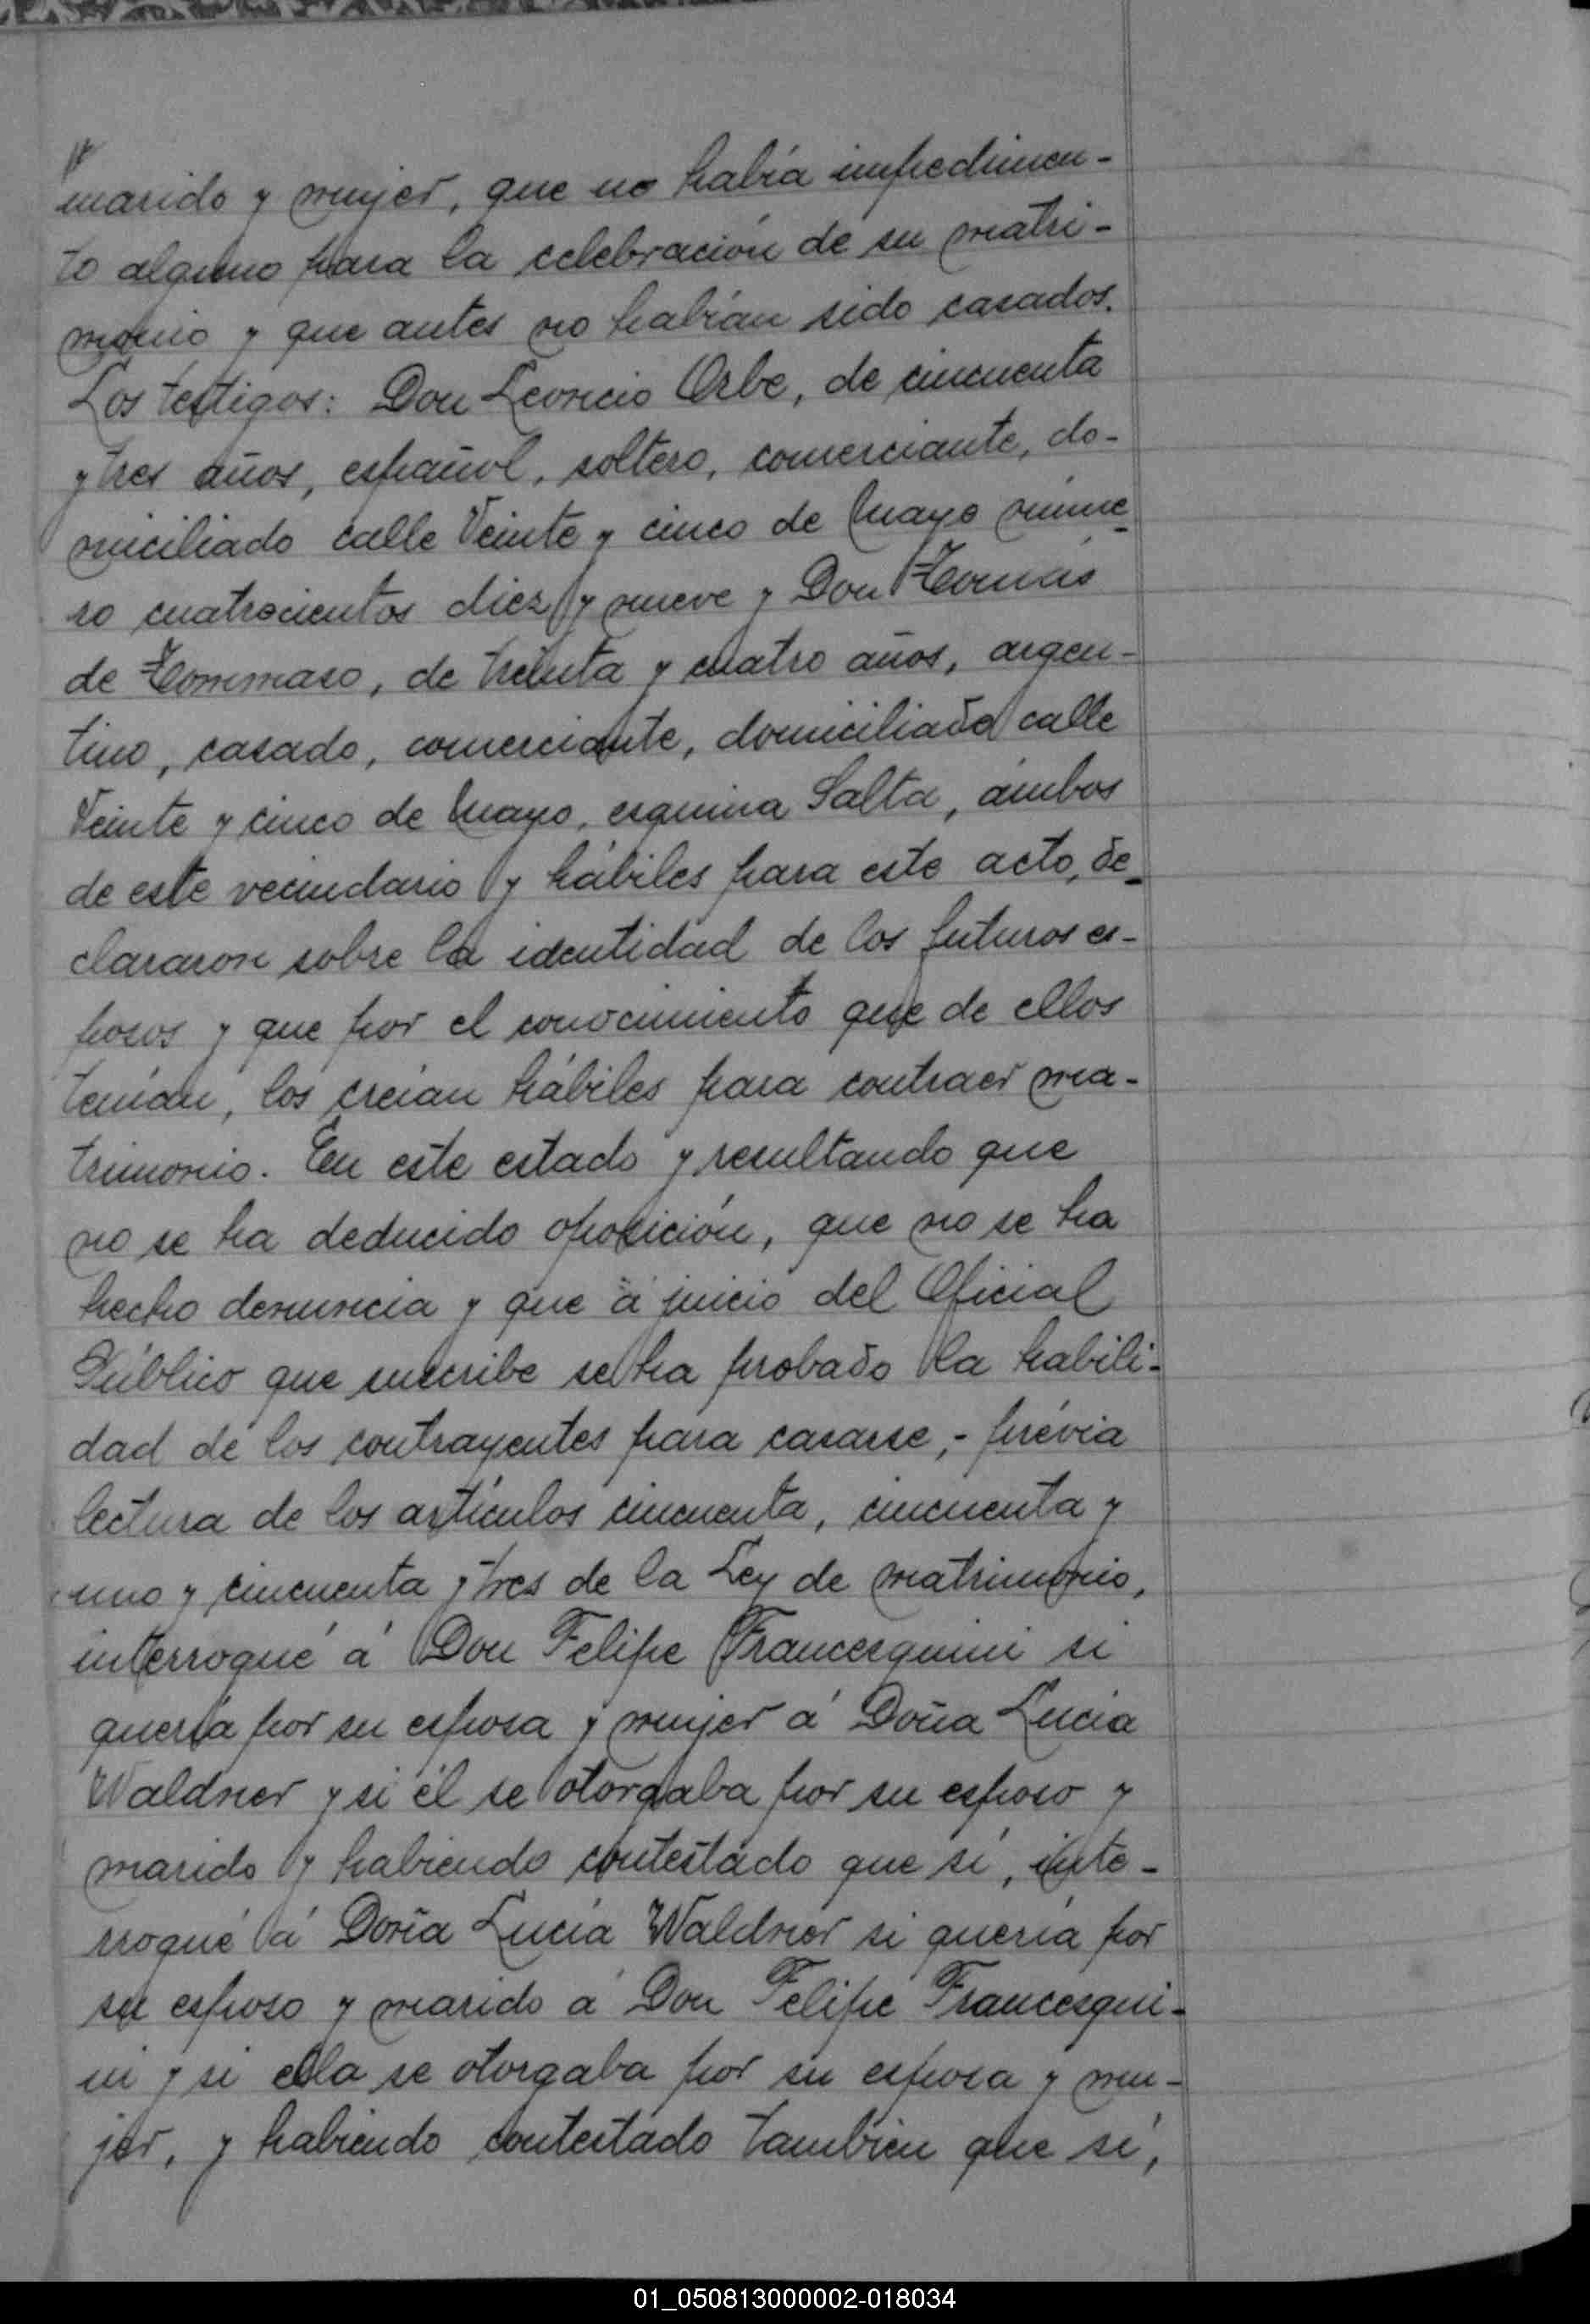 marido y mujer, que no había impedimen-
to alguno para la celebración de su matri-
monio y que antes no habían sido casados.
Los testigos: Don Leoncio Orbe, de cincuenta
y tres años, español, soltero, comerciante, do-
miciliado calle Veinte y cinco de Mayo núme-
ro cuatrocientos diez y nueve y Don Tomás
de Tommaso, de treinta y cuatro años, argen-
tino, casado, comerciante, domiciliado calle
Veinte y cinco de Mayo, esquina Salta, ámbos
de este vecindario y hábiles para este acto, de-
clararon sobre la identidad de los futuros es-
posos y que por el conocimiento que de ellos
tenían, los creían hábiles para contraer ma-
trimonio. En este estado y resultando que
no se ha deducido oposición, que no se ha
hecho denuncia y que á juicio del Oficial
Público que suscribe se ha probado la habili-
dad de los contrayentes para casarse,- prévia
lectura de los artículos cincuenta, cincuenta y
uno y cincuenta y tres de la Ley de matrimonio,
interrogué á Don Felipe Francesquini si
quería por su esposa y mujer á Doña Lucía
Waldner y si él se otorgaba por su esposo y
marido y habiendo contestado que sí, inte-
rrogué á Doña Lucía Waldner si quería por
su esposo y marido á Don Felipe Francesqui-
ni y si ella se otorgaba por su esposa y mu-
jer, y habiendo contestado tambien que sí,
01_050813000002-018034